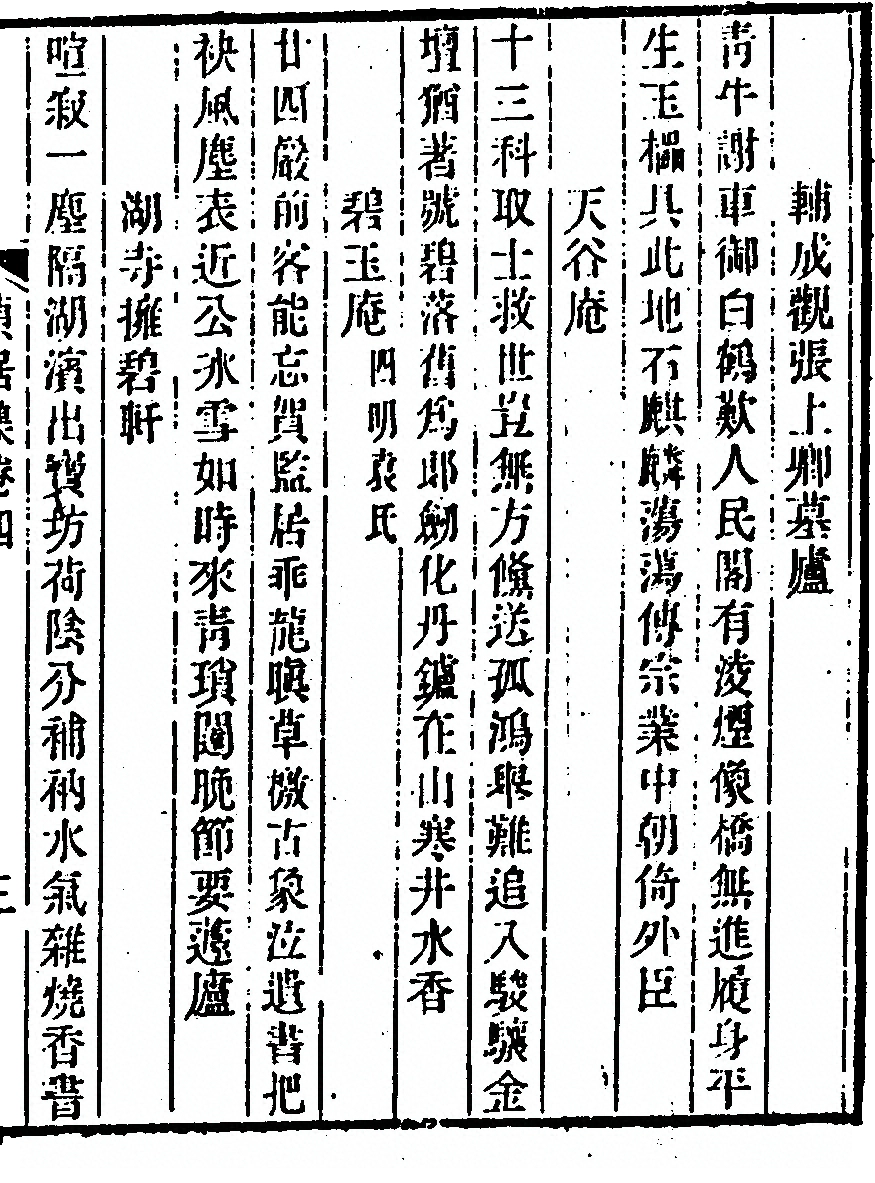 輔成觀張上卿墓廬
青牛謝車御白鶴歎人民閣有淩煙像橋無進履身平
生玉櫑具此地石麒麟蕩蕩傳宗業中朝倚外臣
天谷庵
十三科取士救世豈無方儵送孤鴻舉難追入駿驤金
壇猶著號碧落舊爲郎劒化丹鑪在山寒井水香
碧玉庵四明袁氏
廿四巖前客能忘賀監居乖龍瞋草檄古象泣遺書把
袂風塵表近公冰雪如時來青瑣闥晚節要蘧廬
湖寺擁碧軒
喧寂一塵隔湖濱出寶坊荷陰分補衲水氣雜燒香書
貞居集卷四
三